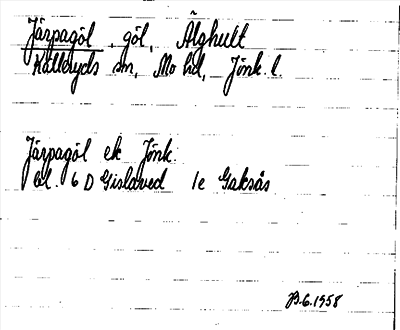 Järpagöl, göl, Älghult
Källeryds sn, Mo hd, Jönk. l.
Järpagöl ek Jönk.
bl. 6 D Gislaved 1e Gaksås
B.6.1958